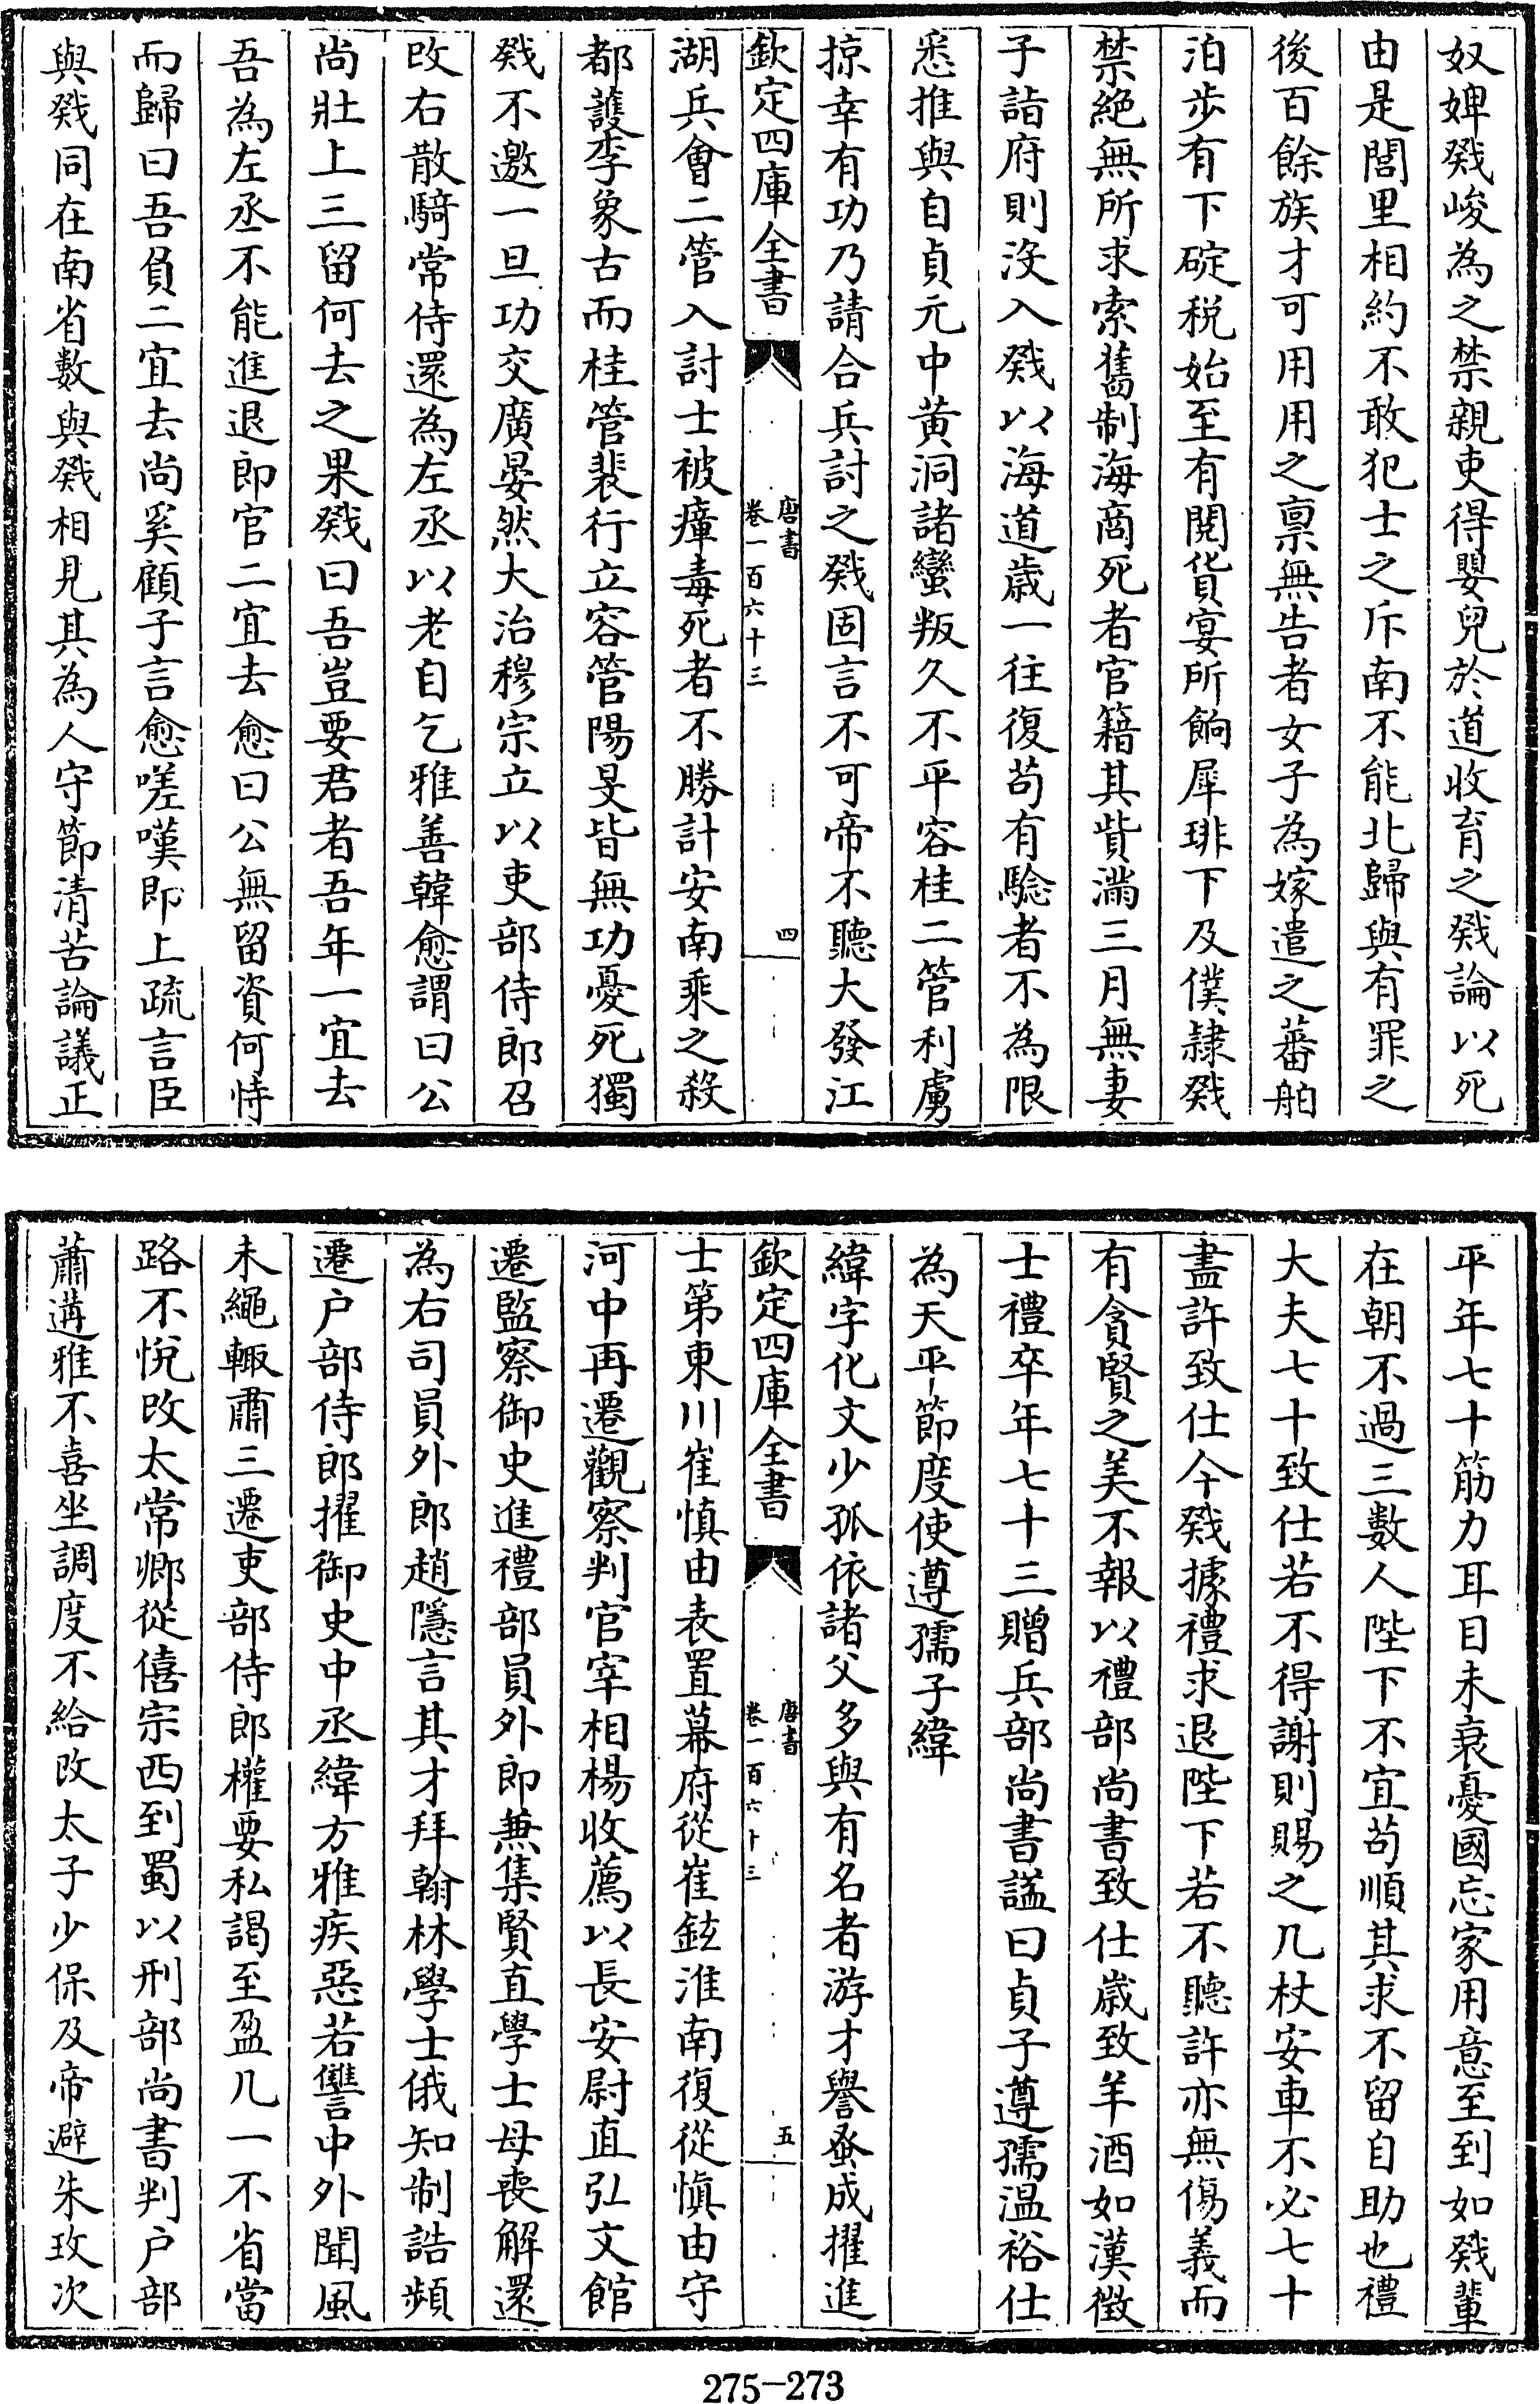 奴婢戣峻為之禁親吏得嬰兒於道收育之戣論以死
由是閭里相約不敢犯士之斥南不能北歸與有罪之
後百餘族才可用用之禀無告者女子為嫁遣之蕃舶
泊步有下碇税始至有閱貨宴所餉犀琲下及僕隸戣
禁絕無所求索舊制海商死者官籍其貲滿三月無妻
子詣府則沒入戣以海道歲一往復苟有驗者不為限
悉推與自貞元中黃洞諸蠻叛久不平容桂二管利虜
掠幸有功乃請合兵討之戣固言不可帝不聽大發江
欽定四庫全書
唐書
卷一百六十三
四
湖兵會二管入討士被瘴毒死者不勝計安南乘之殺
都護李象古而桂管裴行立容管陽旻皆無功憂死獨
戣不邀一旦功交廣晏然大治穆宗立以吏部侍郎召
改右散騎常侍還為左丞以老自乞雅善韓愈謂曰公
尚壯上三留何去之果戣曰吾豈要君者吾年一宜去
吾為左丞不能進退郎官二宜去愈曰公無留資何恃
而歸曰吾負二宜去尚奚顧子言愈嗟嘆即上疏言臣
與戣同在南省數與戣相見其為人守節清苦論議正
平年七十筋力耳目未衰憂國忘家用意至到如戣輩
在朝不過三數人陛下不宜苟順其求不留自助也禮
大夫七十致仕若不得謝則賜之几杖安車不必七十
盡許致仕今戣據禮求退陛下若不聽許亦無傷義而
有貪賢之美不報以禮部尚書致仕歲致羊酒如漢徵
士禮卒年七十三贈兵部尚書諡曰貞子遵孺溫裕仕
為天平節度使遵孺子緯
緯字化文少孤依諸父多與有名者游才譽蚤成擢進
欽定四庫全書
唐書
卷一百六十三
五
士第東川崔慎由表置幕府從崔鉉淮南復從慎由守
河中再遷觀察判官宰相楊收薦以長安尉直弘文館
遷監察御史進禮部員外郎兼集賢直學士母喪解還
為右司員外郎趙隱言其才拜翰林學士俄知制誥頻
遷戶部侍郎擢御史中丞緯方雅疾惡若讐中外聞風
未繩輒肅三遷吏部侍郎權要私謁至盈几一不省當
路不悅改太常卿從僖宗西到蜀以刑部尚書判戶部
蕭遘雅不喜坐調度不給改太子少保及帝避朱玫次
275-273